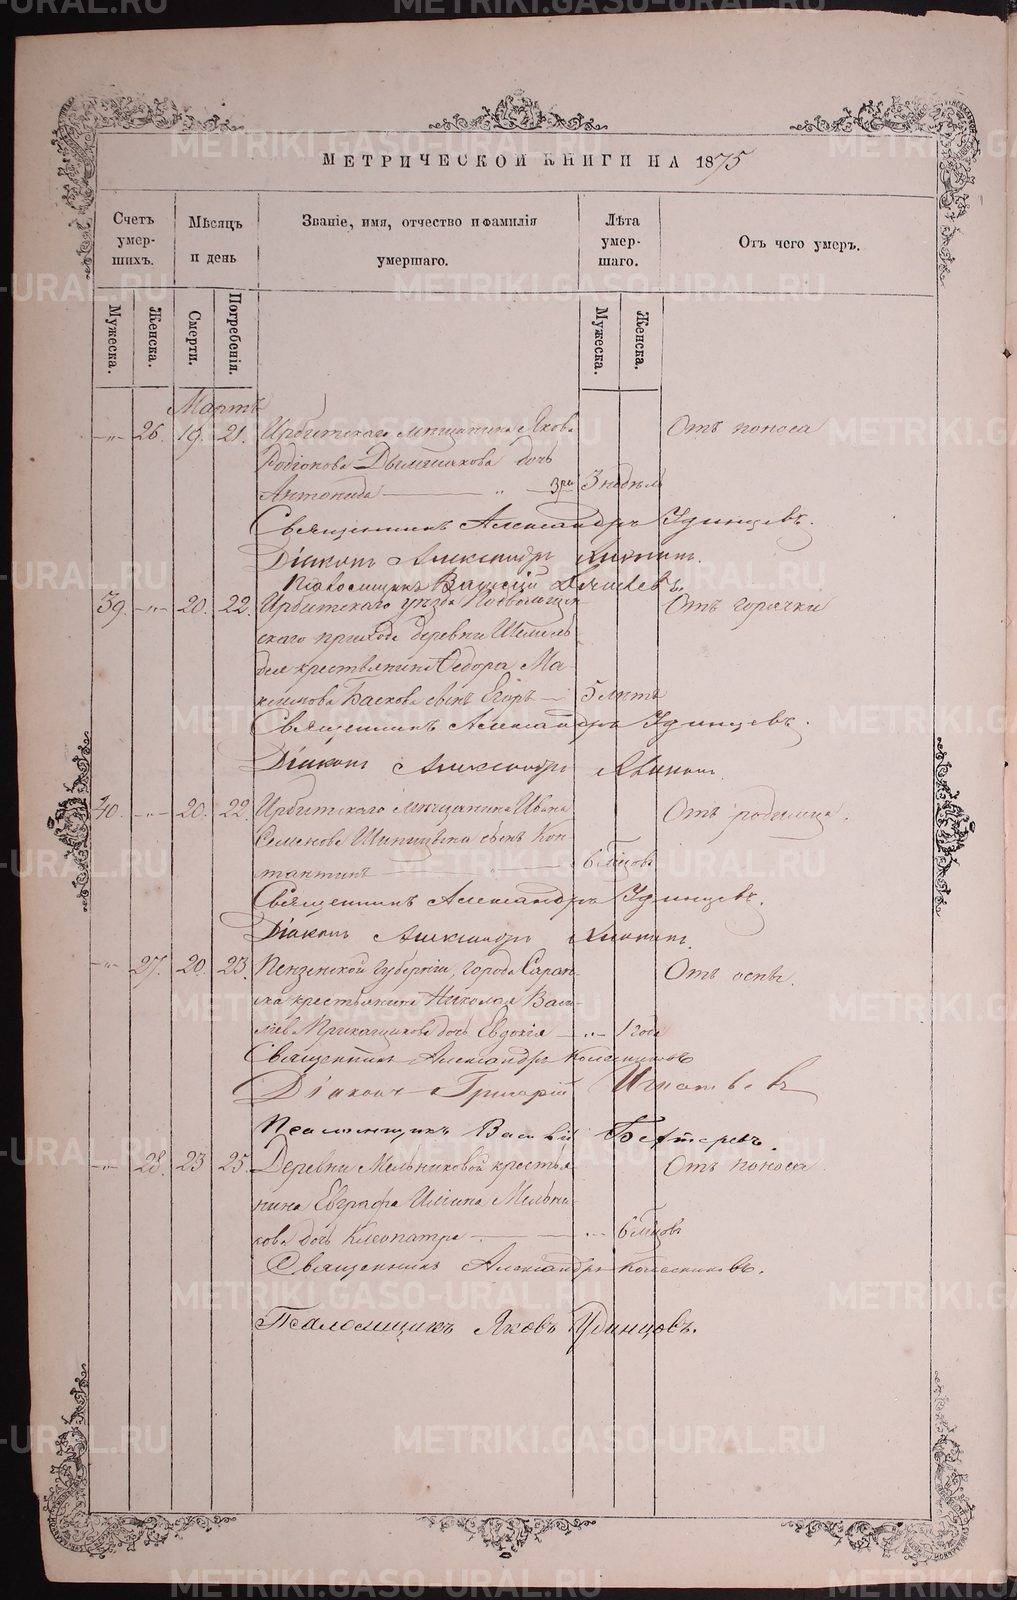 МЕТРИЧЕСКОЙ КНИГИ НА 1875
Счетъ умер-шихъ.
Мѣсяцъ и день
Званіе, имя, отчество и фамилія умершаго.
Лѣта умер-шаго.
Отъ чего умеръ.
Мужеска.
Женска.
Смерти.
Погребенія.
Мужеска.
Женска.
Мартъ
-"- 26. 19. 21. Ирбитскаго мѣщанина Якова Отъ поноса
Родіонова дочь
Антонида 3 недѣль
Священникъ Александръ Удинцевъ.
Діаконъ Александръ
Псаломщикъ Василій
39. -"- 20. 22. Ирбитскаго уѣзда Отъ горячки
скаго прихода деревни
крестьянина Ѳедора Ма-
ксимова Баскова сынъ Егоръ 5 лѣтъ
Священникъ Александръ Удинцевъ.
Діаконъ Александръ
40. -"- 20. 22. Ирбитскаго мѣщанина Ивана Отъ родимца.
Семенова Шипицына сынъ Кон-
стантинъ 6 мѣсяцовъ
Священникъ Александръ Удинцевъ.
Діаконъ Александръ
-"- 27. 20. 23. Пензенской губерніи, города Саран-
Отъ оспы.
ска крестьянина Николая Васи-
ліева Прикащикова дочь Евдокія -"- 1 года
Священникъ Александръ Колесниковъ
Діаконъ Григорій Игнатьевъ
Псаломщикъ Василій Бехтеревъ.
-"- 28. 23 25. Деревни Мельниковой крестья-
Отъ поноса
нина Евграфа Ильина Мельни-
кова дочь Клеопатра 6 мѣсяцовъ
Священникъ Александръ Колесниковъ.
Псаломщикъ Яковъ Удинцовъ.
METRIKI.GASO-URAL.RU